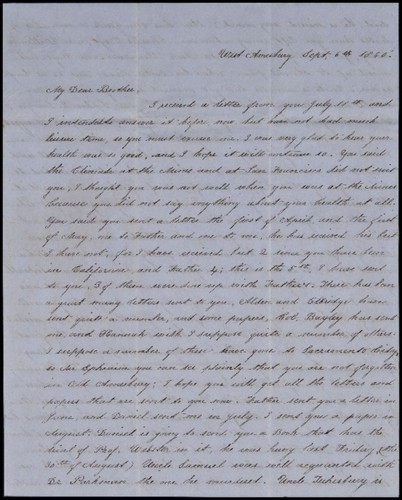 West Amesbury Sept. 6th 1850.
My Dear Brother.
I received a letter from you July 10th, and
I intended to answer it before now but have not had much
leisure time, so you must excuse me. I was very glad to hear your
health was so good, and I hope it will continue so. You said
the Climate at the Mines and at San Francisco did not suit
you, I thought you was not well when you was at the Mines
because you did not say anything about your health at all.
You said you sent a letter the first of April and the first
of May one to Father and one to me, he has received his but
I have not, for I have received but 2 since you have been
in California, and Father 4; this is the 5th I have sent
to you, 3 of them were done up with Father's. There has been a
great many letters sent to you, Alden and Elbridge have
sent quite a number, and some papers, Col. Bayley has sent
one and Hannah with I suppose quite a number of others
I suppose a number of them have gone to Sacramento directed
to Mr. Ephraim you can see plainly that you are not forgotten
in Old Amesbury; I hope you will get all the letters and
papers that are sent to you now. Father sent you a letter in
June and Daniel sent one in July. I sent you a paper in
August. Daniel is going to send you a Book that has the
trial of Prof. Webster in it, he was hung last Friday (the
30th of August) Uncle Samuel was well acquainted with
Dr. Parkman the one he murdered. Uncle is